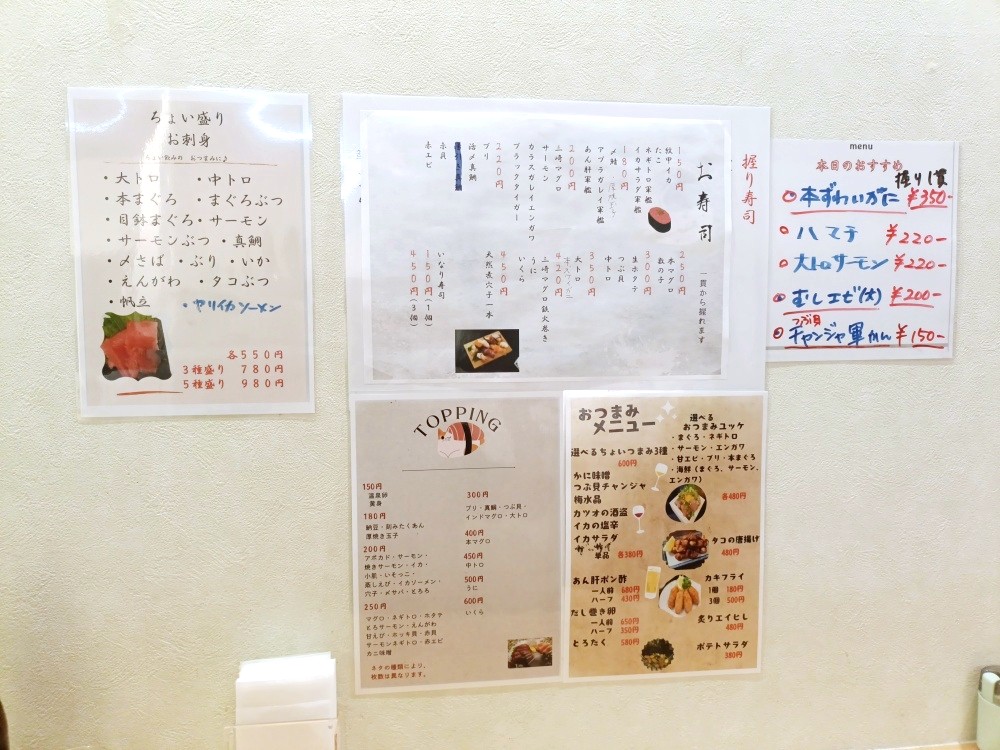 ちょい盛り
お刺身
ちょい飲みの おつまみに♪
・大トロ ・中トロ
・本まぐろ ・まぐろぶつ
・目鉢まぐろ・サーモン
・サーモンぶつ ・真鯛
・〆さば ・ぶり ・いか
・えんがわ ・タコぶつ
・帆立 ・ヤリイカソーメン
各550円
3種盛り 780円
5種盛り 980円
握り寿司
お寿司
一貫から握れます
150円
紋甲イカ
たこ
ネギトロ軍艦
イカサラダ軍艦
180円
〆鯖
アブラガレイ軍艦
あん肝軍艦
200円
三崎マグロ
サーモン
カラスガレイエンガワ
ブラックタイガー
220円
ブリ
活〆真鯛
赤貝
赤エビ
250円
本マグロ
数の子
300円
生ホタテ
つぶ貝
中トロ
350円
大トロ
420円
三崎マグロ鉄火巻き
うに
いくら
450円
天然煮穴子一本
いなり寿司
150円(1個)
450円(3個)
menu
本日のおすすめ
握り1貫
本ずわいがに ¥350-
ハマチ ¥220-
大トロサーモン ¥220-
むしエビ(大) ¥200-
つぶ貝
チャンジャ軍かん ¥150-
TOPPING
150円
温泉卵
黄身
180円
納豆・刻みたくあん
厚焼き玉子
200円
アボカド・サーモン・
焼きサーモン・イカ・
小肌・いそっこ・
蒸しえび・イカソーメン・
穴子・メサバ・とろろ
250円
マグロ・ネギトロ・ホタテ
とろサーモン・えんがわ
甘えび・ホッキ貝・赤貝
サーモンネギトロ・赤エビ
カニ味噌
ネタの種類により、
枚数は異なります。
300円
ブリ・真鯛・つぶ貝・
インドマグロ・大トロ
400円
本マグロ
450円
中トロ
500円
うに
600円
いくら
おつまみ
メニュー
選べるちょいつまみ3種
600円
かに味噌
つぶ貝チャンジャ
梅水晶
カツオの酒盗
イカの塩辛
イカサラダ
単品 各380円
あん肝ポン酢
一人前 680円
ハーフ 430円
だし巻き卵
一人前 650円
ハーフ 350円
とろたく 580円
選べる
おつまみユッケ
・まぐろ・ネギトロ
・サーモン・エンガワ
・甘エビ・ブリ・本まぐろ
・海鮮(まぐろ、サーモン、
エンガワ)
各480円
タコの唐揚げ
480円
カキフライ
1個 180円
3個 500円
炙りエイヒレ
480円
ポテトサラダ
380円